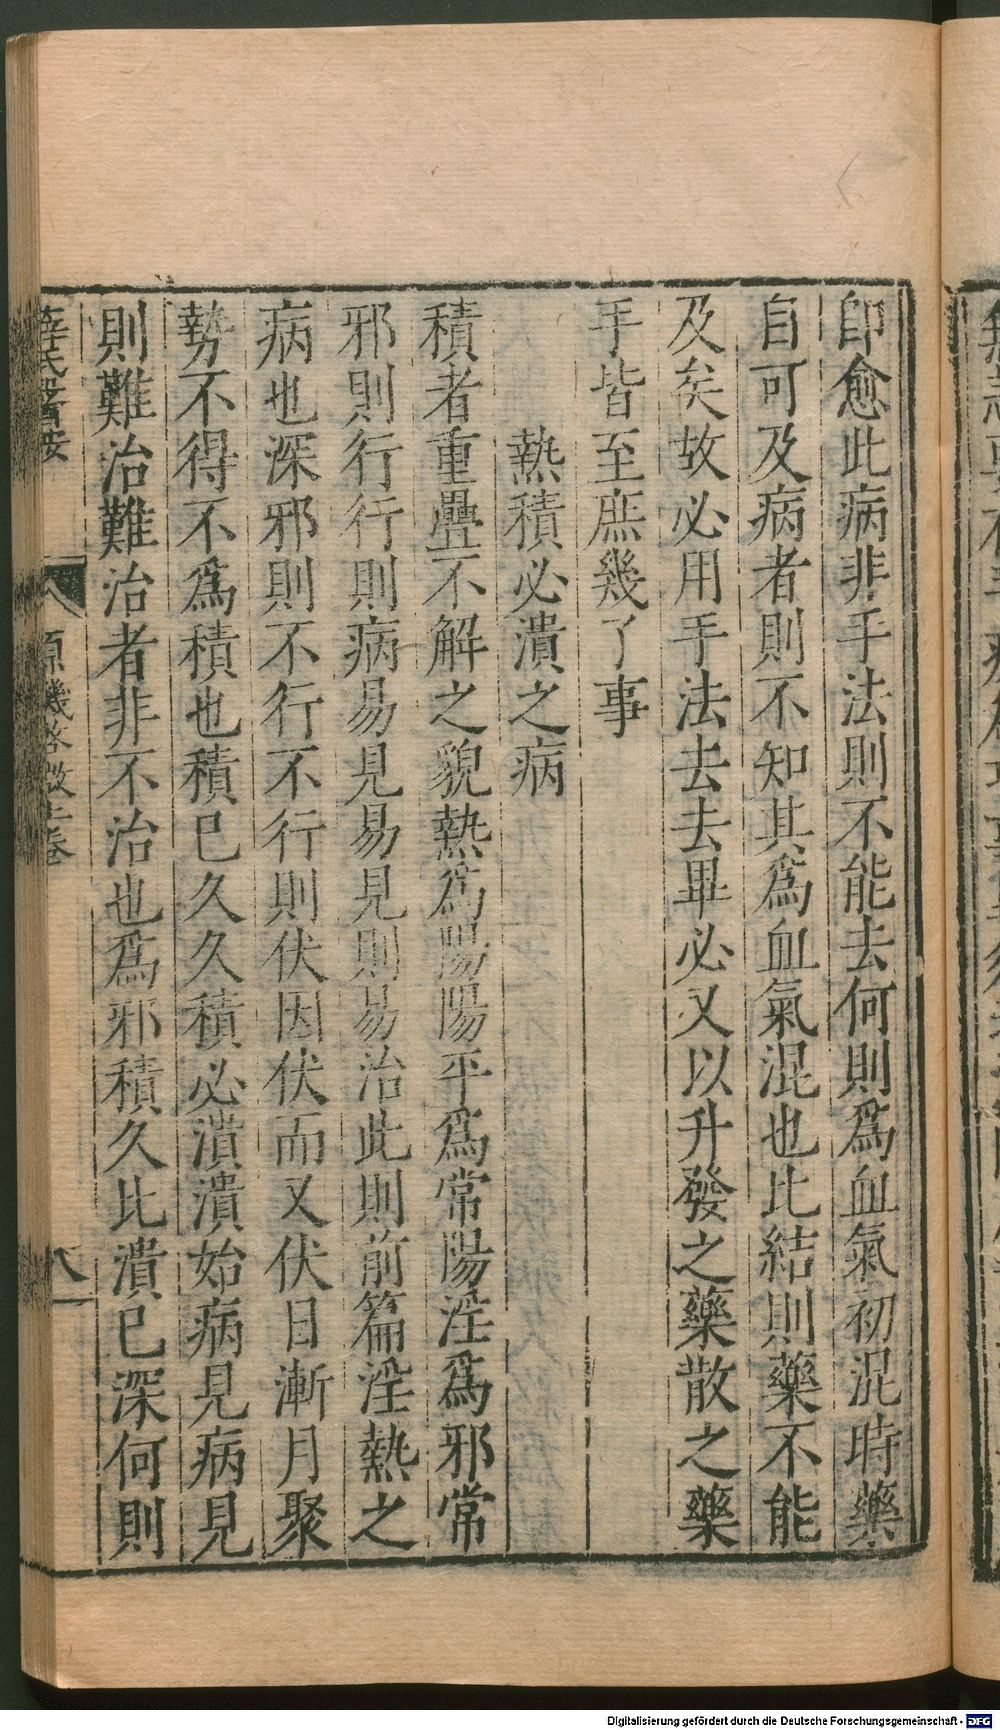 卽愈此病非手法則不能去何則爲血氣初混時藥
自可及病者則不知其爲血氣混也比結則藥不能
及矣故必用手法去去畢必又以升發之藥散之藥
手皆至庶幾了事
熱積必潰之病
積者重疊不解之貌熱爲陽陽平爲常陽淫爲邪常
邪則行行則病易見易見則易治此則前篇淫熱之
病也深邪則不行不行則伏因伏而又伏日漸月聚
勢不得不爲積也積已久久積必潰潰始病見病見
則難治難治者非不治也爲邪積久比潰已深何則
薛氏醫按
原機啓微上卷
八
Digitalisierung gefördert durch die Deutsche Forschungsgemeinschaft - DFG